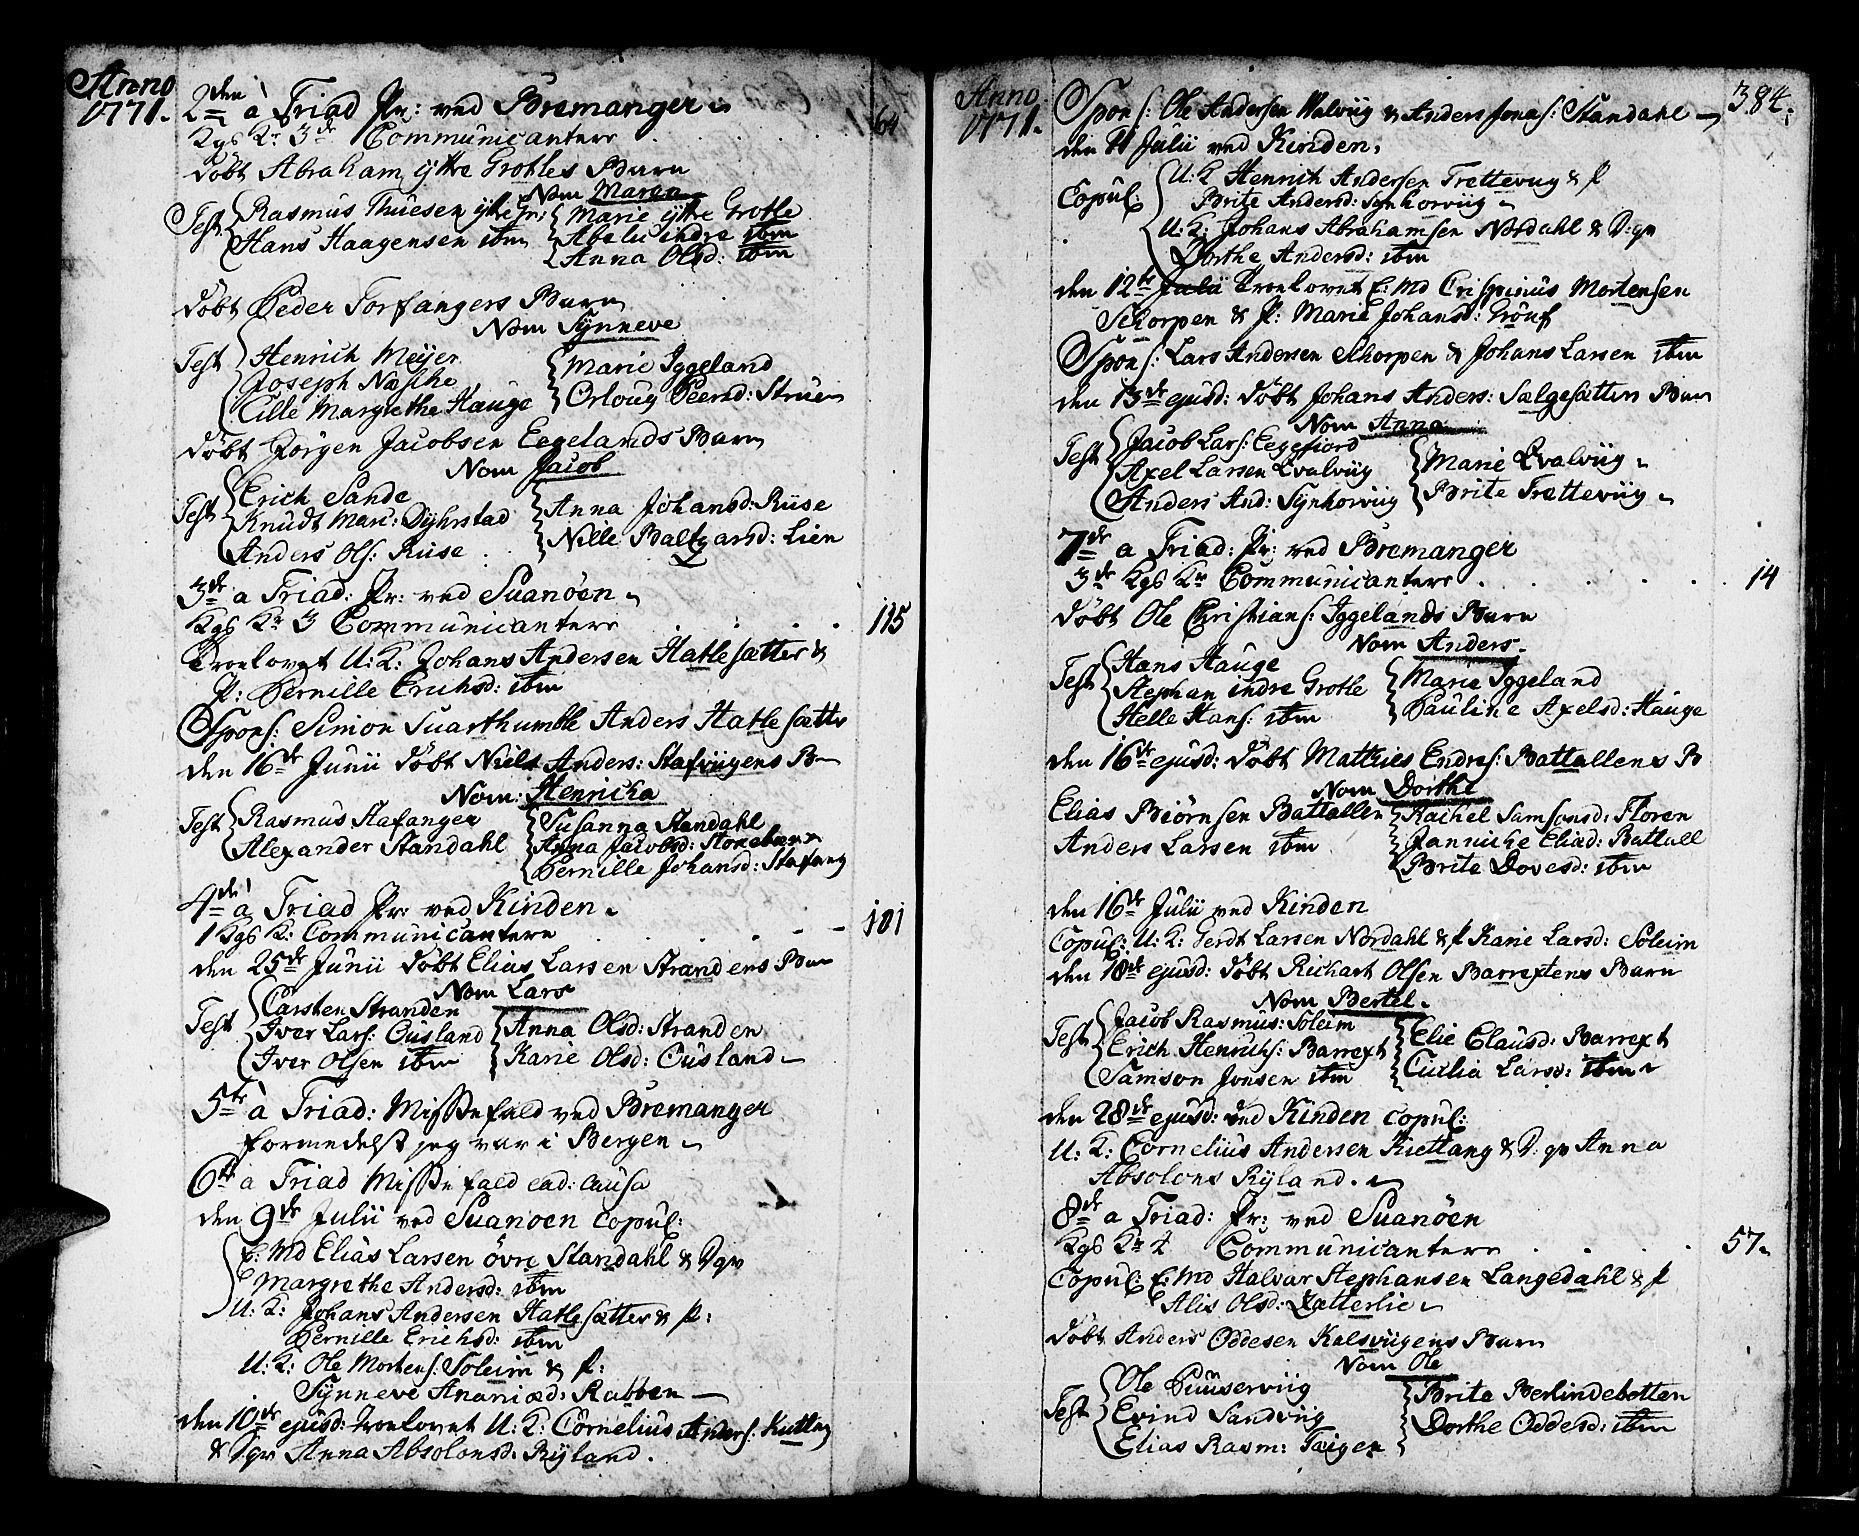 Anno 1771.
2den à Triad Pr: ved Bremanger
Kgs Kr 3de Communicanter 64
Døbt Abraham ytre Grotles Barn
Nom Maren
Test Rasmus Thuesen ytre Gr: Marie ytre Grotle
Hans Haagensen ibm Abelu indre ibm
Anna Olsd: ibm
Døbt Peder Torfangers Barn
Nom Synneve
Test Henrich Meyer Marie Iggeland
Joseph Næsche Orloug Peersd: Struen
Cille Margrethe Hauge
Døbt Jørgen Jacobsen Eegelands Barn
Nom Jacob
Test Erich Sande Anna Johansd: Riise
Knudt Mari: Dyhrstad Nille Baltzarsd: Lien
Anders Ols: Riise
3de a Triad: Pr: ved Suanøen
Kgs Kr 3 Communicanter 115
Troelovet U: K: Johans Andersen Hatlesætter &
P: Pernille Erichsd: ibm
Spons: Simon Suarthumble Anders Hatlesætter
den 16de Junii døbt Niels Anders: Stafviigens B
Nom: Henricka
Test Rasmus Stafanger Susanna Standahl
Alexander Standahl Anna Jacobsd:
Pernille Johansd: Stafang
4de à Triad Pr: ved Kinden
1 Kgs K: Communicanter 101
den 25de Junii døbt Elias Larsen Strandens Bar
Nom Lars
Test Carsten Stranden Anna Olsd: Stranden
Iver Lars: Ousland Karie Olsd: Ousland
Iver Olsen ibm
5te à Triad: Misse fald ved Bremanger
formedelst jeg var i Bergen
6te a Triad Misse fald ead: causa
den 9de Julii ved Suanøen copul:
E: Md Elias Larsen øvre Standahl & Dqv
Margrethe Andersd: ibm
U: K: Johans Andersen Hatlesætter & P:
Pernille Erichsd: ibm
U: K: Ole Mortens: Soleim & P:
Synneve Ananiæd: Rabben
den 10de ejusd: troelovet U: K: Cornelius Anders: Kittang
& Dqv Anna Absolonsd: Ryland.
Anno 1771. 384.
Spons: Ole Andersen Walviig & Anders Jonas: Standahl
den 11 Julii ved Kinden,
Copul: U: K Henrich Andersen Trettevug & P
Brite Andersd: Synhorviig
U: K: Johans Abrahamsen Nordahl & D: qv
Dorthe Andersd: ibm
den 12te Julii troelovet E: Md Crispinus Mortensen
Schorpen & P: Marie Johansd: Grøuf
Spons: Lars Andersen Schorpen & Johans Larsen ibm
den 13de ejusd: døbt Johans Anders: Sælgesætters Barn
Nom Anna
Test Jacob Lars: Eegefiord Marie Qvalviig
Axel Larsen Qvalviig Brite Trætteviig
Anders And: Synhorviig
7de a Triad: Pr: ved Bremanger
3de Kgs Kr Communicanter 14
Døbt Ole Christians: Iggelands Barn
Nom Anders
Test Hans Hauge Marie Iggeland
Stephan indre Grotle Pauline Axelsd: Hauge
Helle Hans: ibm
den 16de ejusd: døbt Mathies Endres: Battallens B
Nom Dorthe
Elias Biørnsen Battallen Rachel Samsonsd: Floren
Anders Larsen ibm Jannicke Eliæd: Battall
Brite Dovesd: ibm
den 16de Julii ved Kinden
Copul: U: K: Gerdt Larsen Nordahl & P Karie Larsd: Soleim
den 18de ejusd: døbt Richart Olsen Barrextens Barn
Nom Bertel
Test Jacob Rasmus: Soleim Elie Clausd: Barrext
Erich Henrichs: Barrext Cicilia Larsd: ibm
Samson Jonsen ibm
den 28de ejusd: ved Kinden copul:
U: K: Cornelius Andersen Kiettang & D: qv Anna
Absolons Ryland.
8de a Triad: Pr: ved Suanøen
Kgs Kr 4 Communicanter 57
Copul: E: Md Halvar Stephansen Langedahl & P
Alis Olsd: Zætterlie
Døbt Anders Oddesen Kalsviigens Barn
Nom Ole
Test Ole Puuserviig Brita Berlindebotten
Evind Sandviig Dorthe Oddesd: ibm
Elias Rasm: Taigen